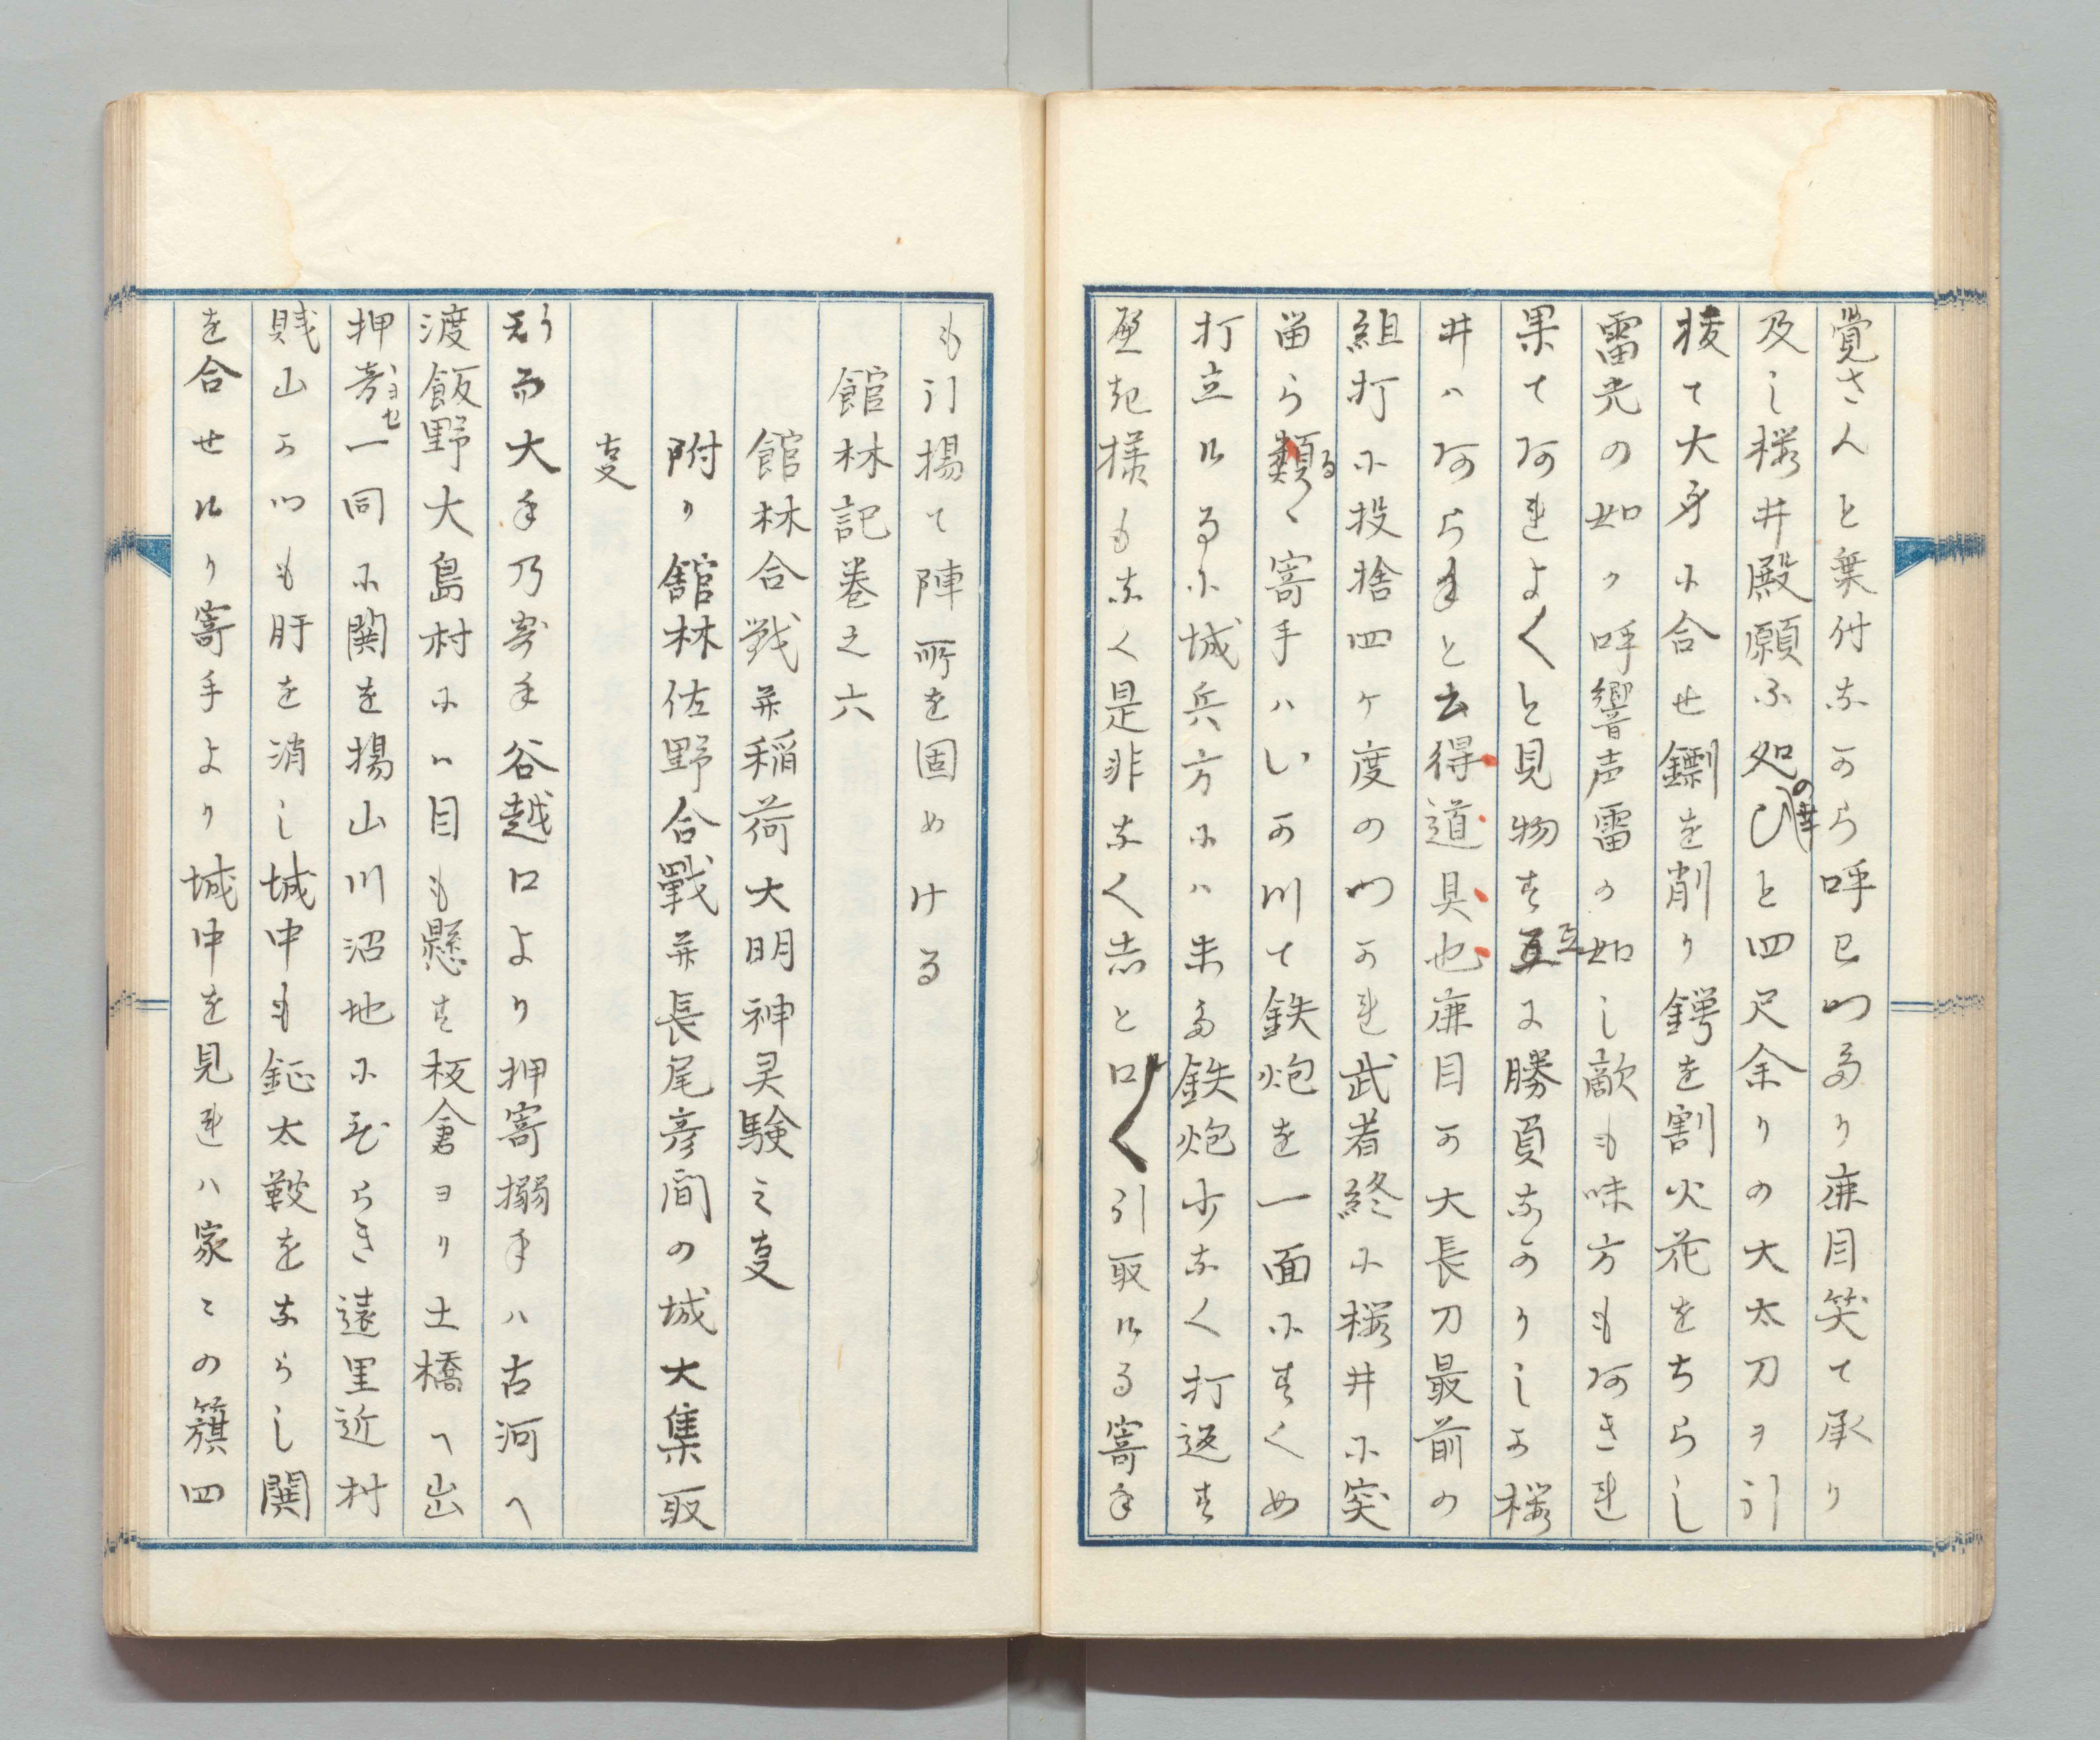 覚さんと乗付なから呼ハつたり廉目笑て承り
及し桜井殿願ふ処の幸ひと四尺余りの大太刀ヲ引
抜て大身に合せ鏢を削り鍔を割火花をちらし
雷光の如ク呼響声雷の如し敵も味方もあきれ
果てあれよくと見物す互に勝負なかりしか桜
井ハあら手と去得道具也廉目か大長刀最前の
組打に投捨四ヶ度のつかれ武者終に桜井に突
留ら類るゝ寄手ハいかつて鉄炮を一面にすくめ
打立けるに城兵方にハ未た鉄炮少なく打返す
様もなく是非なく志と口く引取ける寄手
も引揚て陣所を固めける
館林記巻之六
館林合戦并稲荷大明神灵験之夏
附り館林佐野合戰并長尾彦間の城大集取
夏
而大手乃寄手谷越口より押寄搦手ハ古河へ
渡飯野大島村にハ目も懸す板倉ヨリ土橋へ出
押寄ヨセ一同に鬨を揚山川沼地にひらき遠里近村
賎山かつも肝を消し城中も鉦太鼓をならし鬨
を合せけり寄手より城中を見れハ家々の籏四